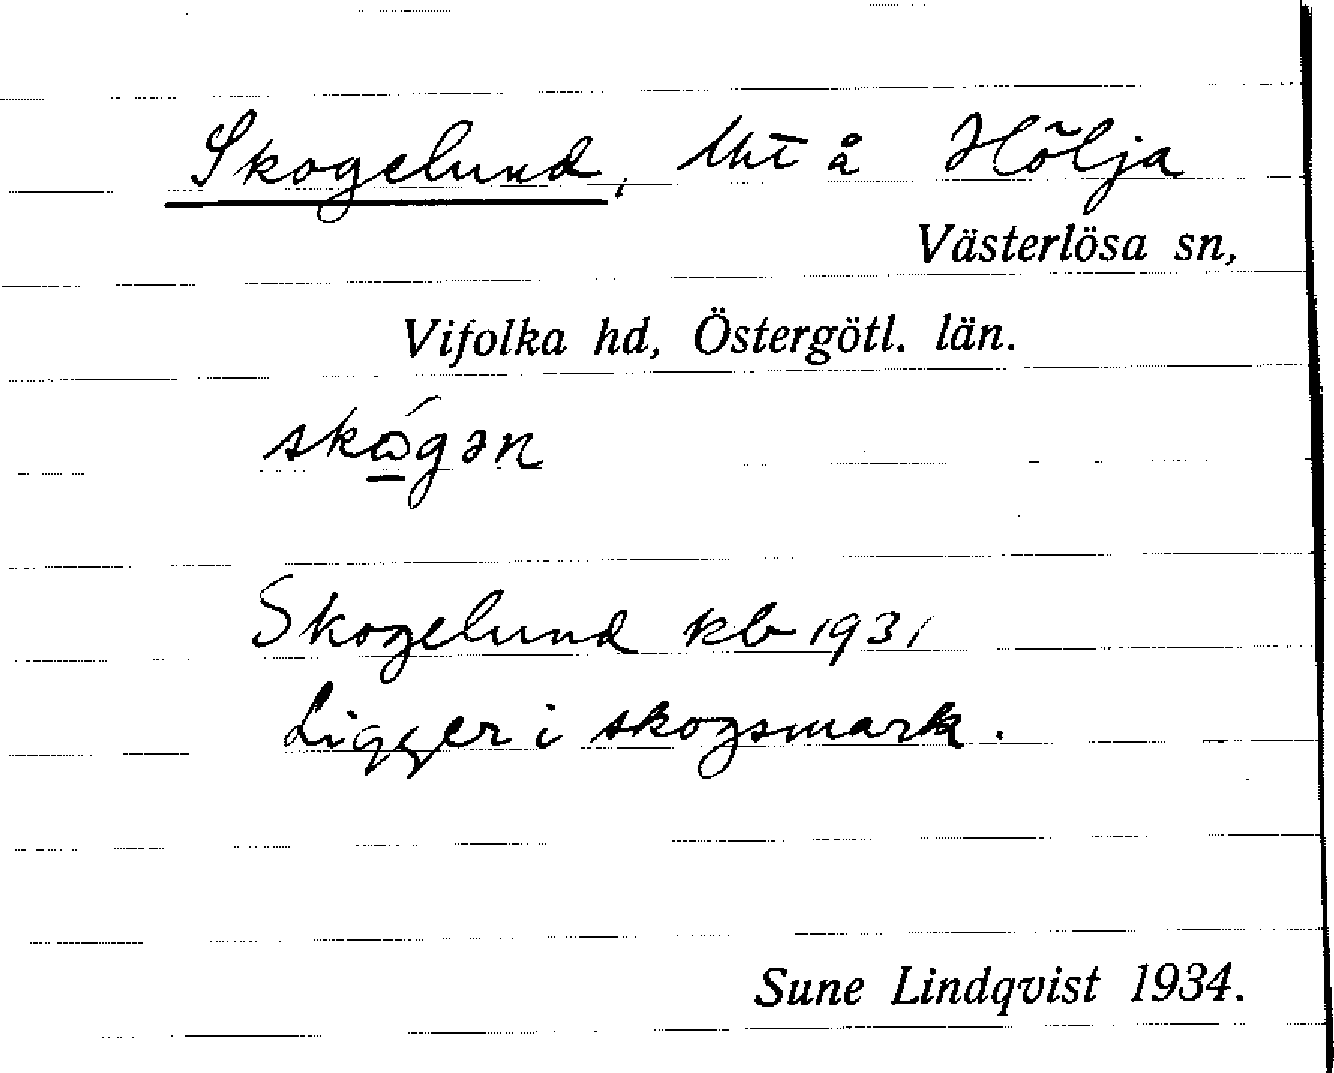 Skogelund, lht å Hölja
Västerlösa sn,
Vifolka hd, Östergötl. län.
skǫ́gən
Skogelund kb 1931
Ligger i skogsmark.
Sune Lindqvist 1934.